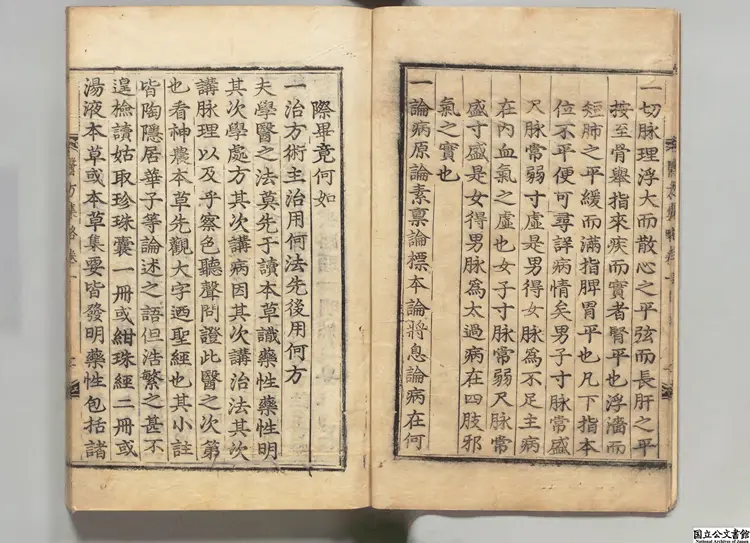 一切脉理浮大而散心之平弦而長肝之平
按至骨舉指來疾而實者腎平也浮濇而
短肺之平緩而滿指脾胃平也凡下指本
位不平便可尋詳病情矣男子寸脉常盛
尺脉常弱寸虛是男得女脉為不足主病
在內血氣之虛也女子寸脉常弱尺脉常
盛寸盛是女得男脉為太過病在四肢邪
氣之實也
一論病原論素稟論標本論將息論病在何
際畢竟何如
一治方術主治用何法先後用何方
夫學醫之法莫先于讀本草識藥性藥性明
其次學處方其次講病因其次講治法其次
講脉理以及乎察色聽聲問證此醫之次第
也看神農本草先觀大字迺聖經也其小註
皆陶隱居華子等論述之語但浩繁之甚不
遑檢讀姑取珍珠囊一冊或紺珠經二冊或
湯液本草或本草集要皆發明藥性包括諸
醫方集略卷
国立公文書館
National Archives of Japan